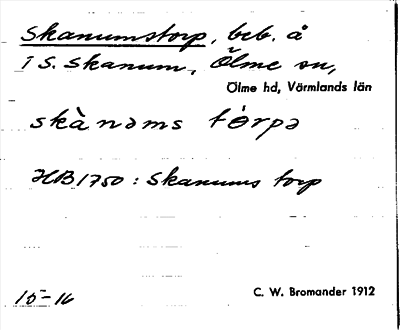 Skanumstorp, beb. å
i S. Skanum, Ölme sn,
Ölme hd, Värmlands län
skànəms tórpə
HB 1750 : Skanums torp
15-16
C. W. Bromander 1912